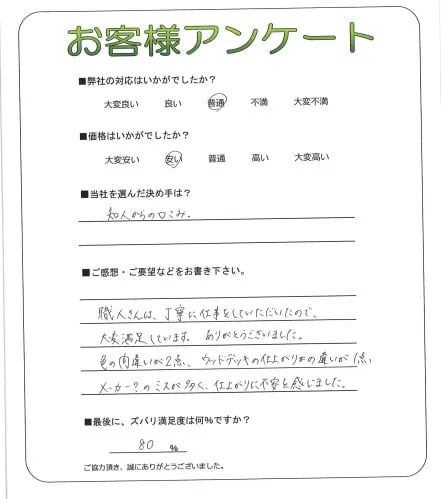 お客様アンケート
■弊社の対応はいかがでしたか?
大変良い 良い 普通 不満 大変不満
■価格はいかがでしたか?
大変安い 安い 普通 高い 大変高い
■当社を選んだ決め手は?
知人からの口こみ。
■ご感想・ご要望などをお書き下さい。
職人さんは、丁寧に仕事をしていただいたので、
大変満足しています。 ありがとうございました。
色の間違いが2点、ウッドデッキの仕上がりの違いが1点、
メーカー?のミスが多く、仕上がりに不安を感じました。
■最後に、ズバリ満足度は何%ですか?
80 %
ご協力頂き、誠にありがとうございました。